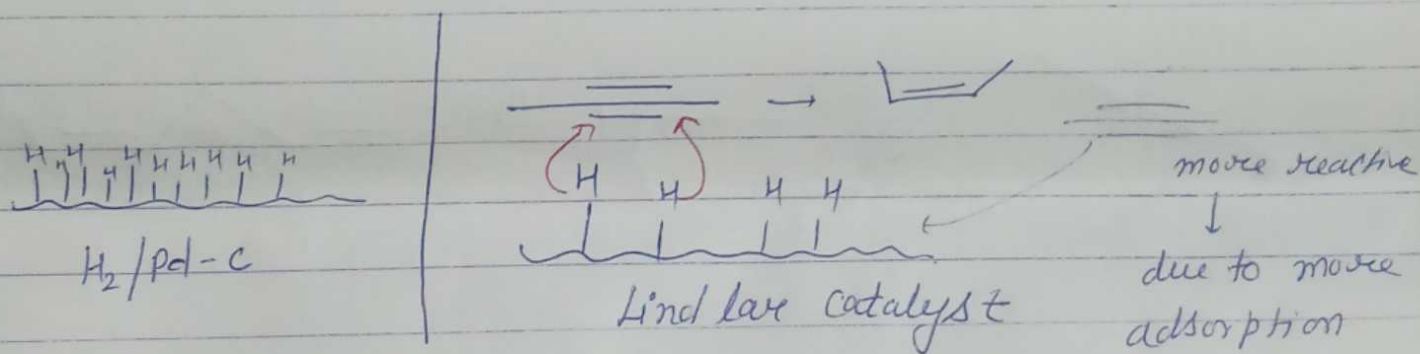 H H H H H H H H H H
H₂/Pd-C
H H H H
Lindlar catalyst
more reactive
↓
due to more
adsorption